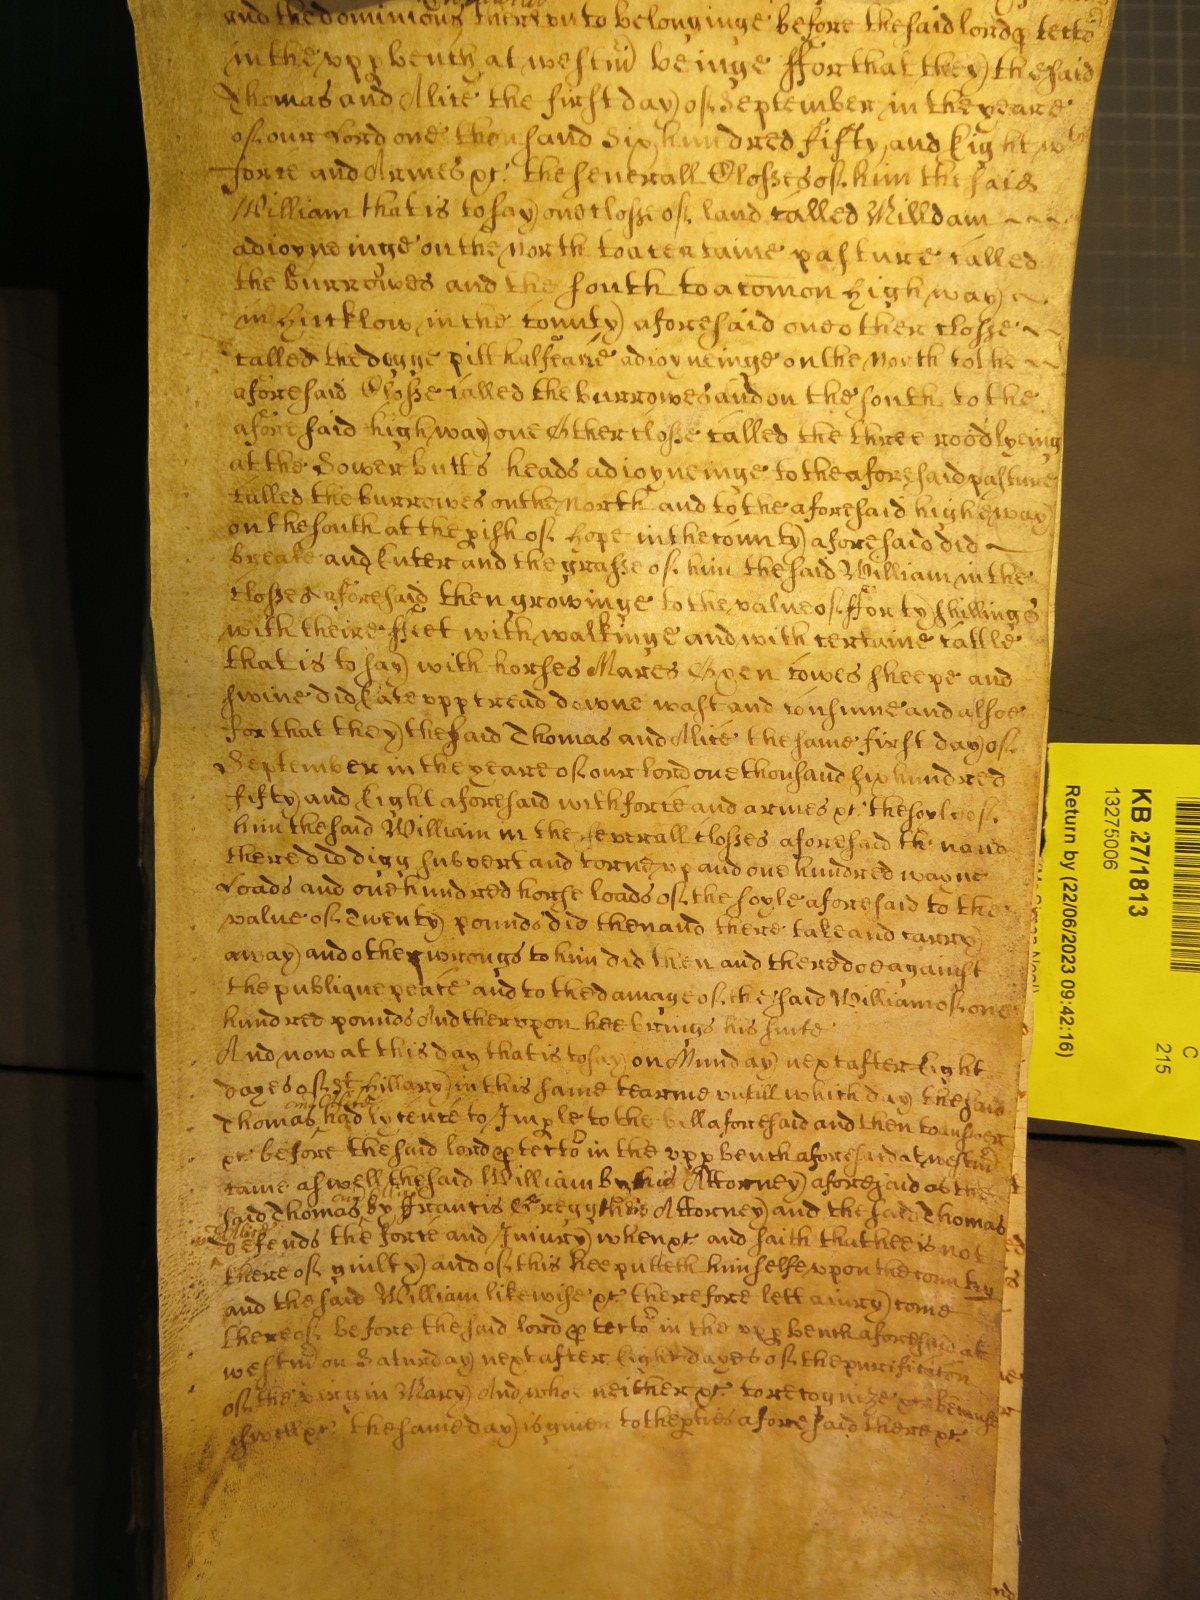 and the dominions thereunto belonginge before the said lord p tectõ
in the upp bench at westm̃ beinge ffor that they the said
Thomas and Alice the first day of September in the yeare
of our Lord one thousand Six hundred fifty and Eight wth
force and Armes xc. the severall Closses of him the said
William that is to say one closse of land called Milldam
adioyneinge on the North to a certaine pasture called
the Burrowes and the south to a comon high way
in Hucklow in the County aforesaid one other closse
called the dogge pitt halfe acre adioyneinge on the North to the
aforesaid Closse called the burrowes and on the south to the
aforesaid high way one Other closse called the three rood lyeing
at the Sower butts heads adioyneinge to the aforesaid pasture
called the burrowes on the North and to the aforesaid highe way
on the south at the pish of Hope in the county aforesaid did
breake and Enter and the grasse of him the said William in the
closses aforesaid then growinge to the value of fforty shillings
with theire ffeet with walkinge and with certaine cattle
that is to say with horses Mares Oxen cowes sheepe and
swine did Eate upp tread downe wast and consume and alsoe
for that they the said Thomas and Alice the same first day of
September in the yeare of our lord one thousand six hundred
fifty and Eight aforesaid with force and armes xc. the soyle of
him the said William in the severall closses aforesaid then and
there did digg subvert and torne up and one hundred wayne
Loads and one hundred horse loads of the soyle aforesaid to the
value of Twenty pounds did then and there take and carry
away and other wrongs to him did then and there doe against
the publique peace and to the damage of the said William of one
hundred pounds And thereupon hee brings his suite
And now at this day that is to say on Munday next after Eight
dayes of St Hillary in this same tearme untill which day the said
Thomas and Alice had lycence to Imple to the bill aforesaid and then to answer
xc. before the said lord p tectõ in the upp bench aforesaid at westm̃
came aswell the said William by his Attorney aforesaid as the
said Thomas and Alice by Francis Gregg their Attorney and the said Thomas
and Alice defends the force and Injury when xc. and saith that hee is not
thereof guilty and of this hee putteth himselfe upon the country
and the said William likewise xc. therefore lett a iury come
thereof before the said lord p tectõ in the upp bench aforesaid at
westm̃ on Saturday next after Eight dayes of the purificacõn
of the virgin Mary And whoe neither xc. to recognize xc. because
aswell xc. the same day is given to the pties aforesaid there xc.
KB 27/1813
13275006
Return by (22/06/2023 09:42:16)
C
215